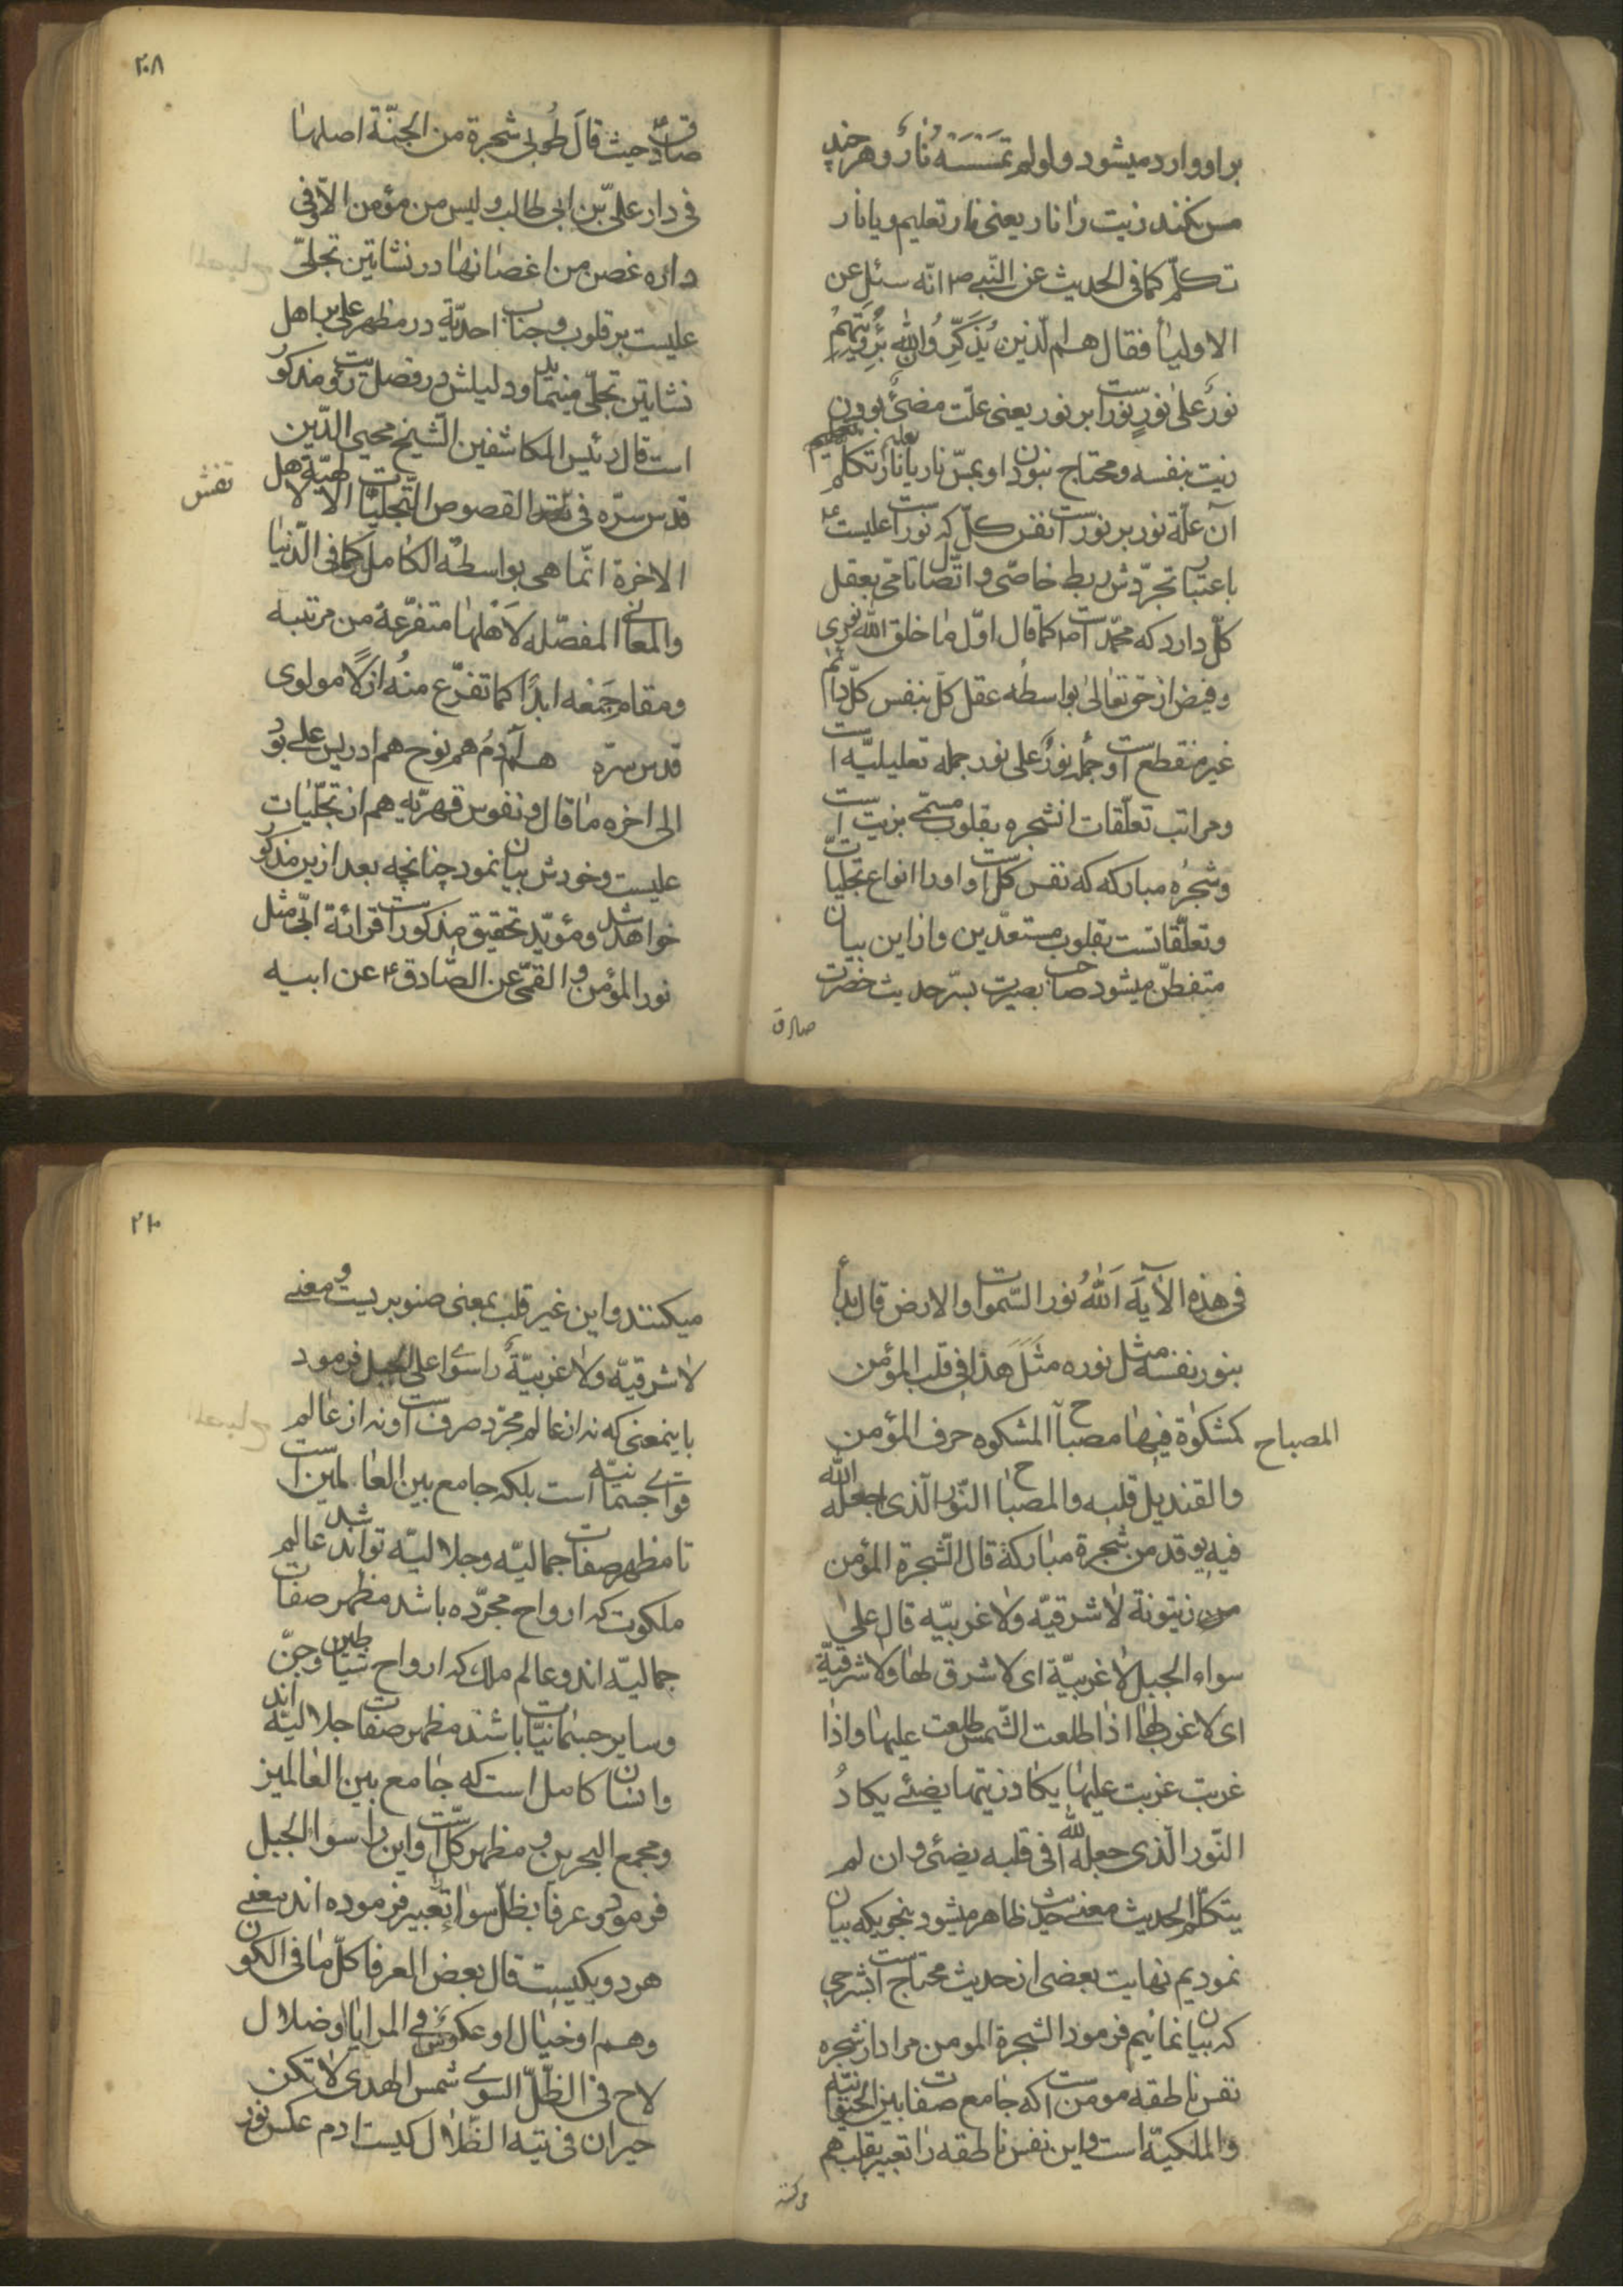 بر او وارد میشود ولولم تمسسه نار و هر چند
مس نکند زیت را نار یعنی نار تعلیم و یا نار
تکلّم کما فی الحدیث عن النّبی ص انّه سئل عن
الاولیأ فقال هم الّذین یُذَکِّرُ والله بُرؤیتهم
نورٌ علیٰ نورٍ نور است بر نور یعنی علّت مضیٔ بودن
زیت بنفسه و محتاج نبودن او بمسّ نار یا نار تکلّم تعلیم
آن علّة نور بر نور است نفس کلّ که نور اعلیست
باعتبار تجرّدش ربط خاصّی و اتّصال تامّی بعقل
کلّ دارد که محمّد است ص کما قال اوّل ما خلق الله نوری
و فیض از حق تعالیٰ بواسطه عقل کلّ بنفس کلّ دائم
غیر منقطع است و جمله نورٌ علی نور جمله تعلیلیّه است
و مراتب تعلّقات انشجره بقلوب مسمّی بزیت است
و شجره مبارکه که نفس کلّ است و او را انواع تجلّیات
و تعلّقاتست بقلوب مستعدّین و از این بیان
متفطّن میشود صاحب بصیرت بسّر حدیث حضرت
صادق
۲۰۸
صادقّ حیث قالَ طُوبی شجرة من الجنّة اصلها
فی دار علیّ بّن ابی طالب و لیس من مؤمن الّا و فی
داره غصن من اغصانها در نشاتین تجلّی
علیست بر قلوب و جناب احدیّة در مظهر علی بر اهل
نشاتین تجلّی مینماید و دلیلش در فصل مذکور
است قال رئیس المکاشفین الشّیخ محیی الدّین
قدس سرّه فی نقش القصوص التّجلّیات الالهیّة لاهل
نقش
الاخرة انّما هی بواسطة الکامل کما فی الدّنیا
والمعانی المفصّله لاَهلها متفرّعة من مرتبه
و مقام جَمْعه ابدًا کما تفرّع منه ازلًا مولوی
قدس سرّه هم آدم هم نوح هم ادریس علی بود
الی اخره ما قال و نفوس قهریّه هم از تجلّیات
علیست و خودش بیان نمود چنانچه بعد ازین مذکور
خواهد شد و مؤیّد تحقیق مذکور است قرائة ابّی مثل
نور المؤمن و القمّی عن الصّادق ع عن ابیه
فی هذه الآیة اَللهُ نور السّموات والارض قال بدأ
بنور نفسه مثل نوره مثَل هَذا فی قلب المؤمن
کمشکوٰة فیها مصباح المشکوه جرف المؤمن
المصباح
والقندیل قلبه والمصباح النّور الّذی جعله الله
فیه یوقد من شجرة مبارکة قال الشّجرة المؤمن
من زیتونة لا شرقیّه ولا غربیّه قال علی
سواء الجبل لا غربیّة ای لا شرق لها ولا شرقیّة
ای لا غرب لها اذا طلعت الشّمس طلعت علیها واذا
غربت غربت علیها یکاد زیتها یضئے یکادُ
النّور الّذی جعله الله فی قلبه یضئی و ان لم
یتکلّم الحدیث معنی حدیث ظاهر میشود بنحویکه بیان
نمودیم نهایت بعضی از حدیث محتاج است بشرحی
که بیان نمائیم فرمود الشجرة المومن مراد از شجره
نفس ناطقه مومن است که جامع صفات بین الحیوانیّه
والملکیّه است و این نفس ناطقه را تعبیر بقلب هم
میکنند
۲۱۰
میکنند و این غیر قلب بمعنی صنوبریست و معنے
لا شرقیّه ولا غربیّة را سواء علی الجبل فرمود
باینمعنی که نه از عالم مجرّد صرف است و نه از عالم
قوای جسمانیّه است بلکه جامع بین العالمین است
تا مظهر صفات جمالیّه و جلالیّه تواند شد عالم
ملکوت که ارواح مجرّده باشد مظهر صفات
جمالیّه اند و عالم ملک که ارواح شیاطین و جنّ
و سایر جسمانیّات باشند مظهر صفات جلالیّه اند
و انسان کامل است که جامع بین العالمین
و مجمع البحرین و مظهر کلّ است و این را سواء الجبل
فرمود و عرفا بظلّ سوا تعبیر فرموده اند معنے
هر دو یکیست قال بعض العرفا کلّ ما فی الکون
وهم او خیال او عکوس فی المرایا او ضلال
لاح فی الظّلّ السّوے شمس الهدی لا تکن
حیران فی تیه الظّلال کیست ادم عکس نور